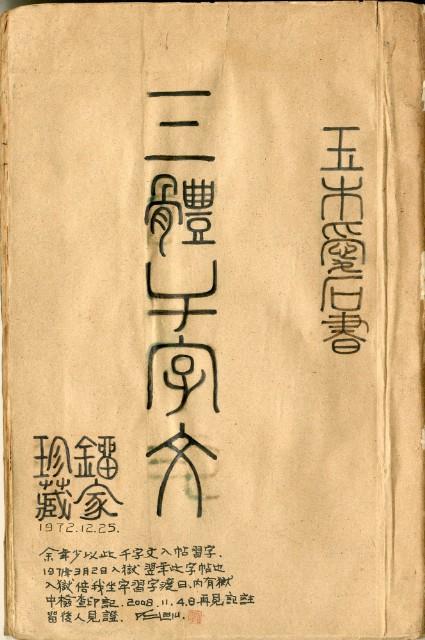 玉木愛石書
三體千字文
鐳家
珍藏
1972.12.25.
余年少以此千字文入帖習字.
3月2日入獄翌年此字帖也
入獄倍我坐牢習字渡日.內有獄
中檢查印記.2008.11.4.8再見記註
留後人見證.